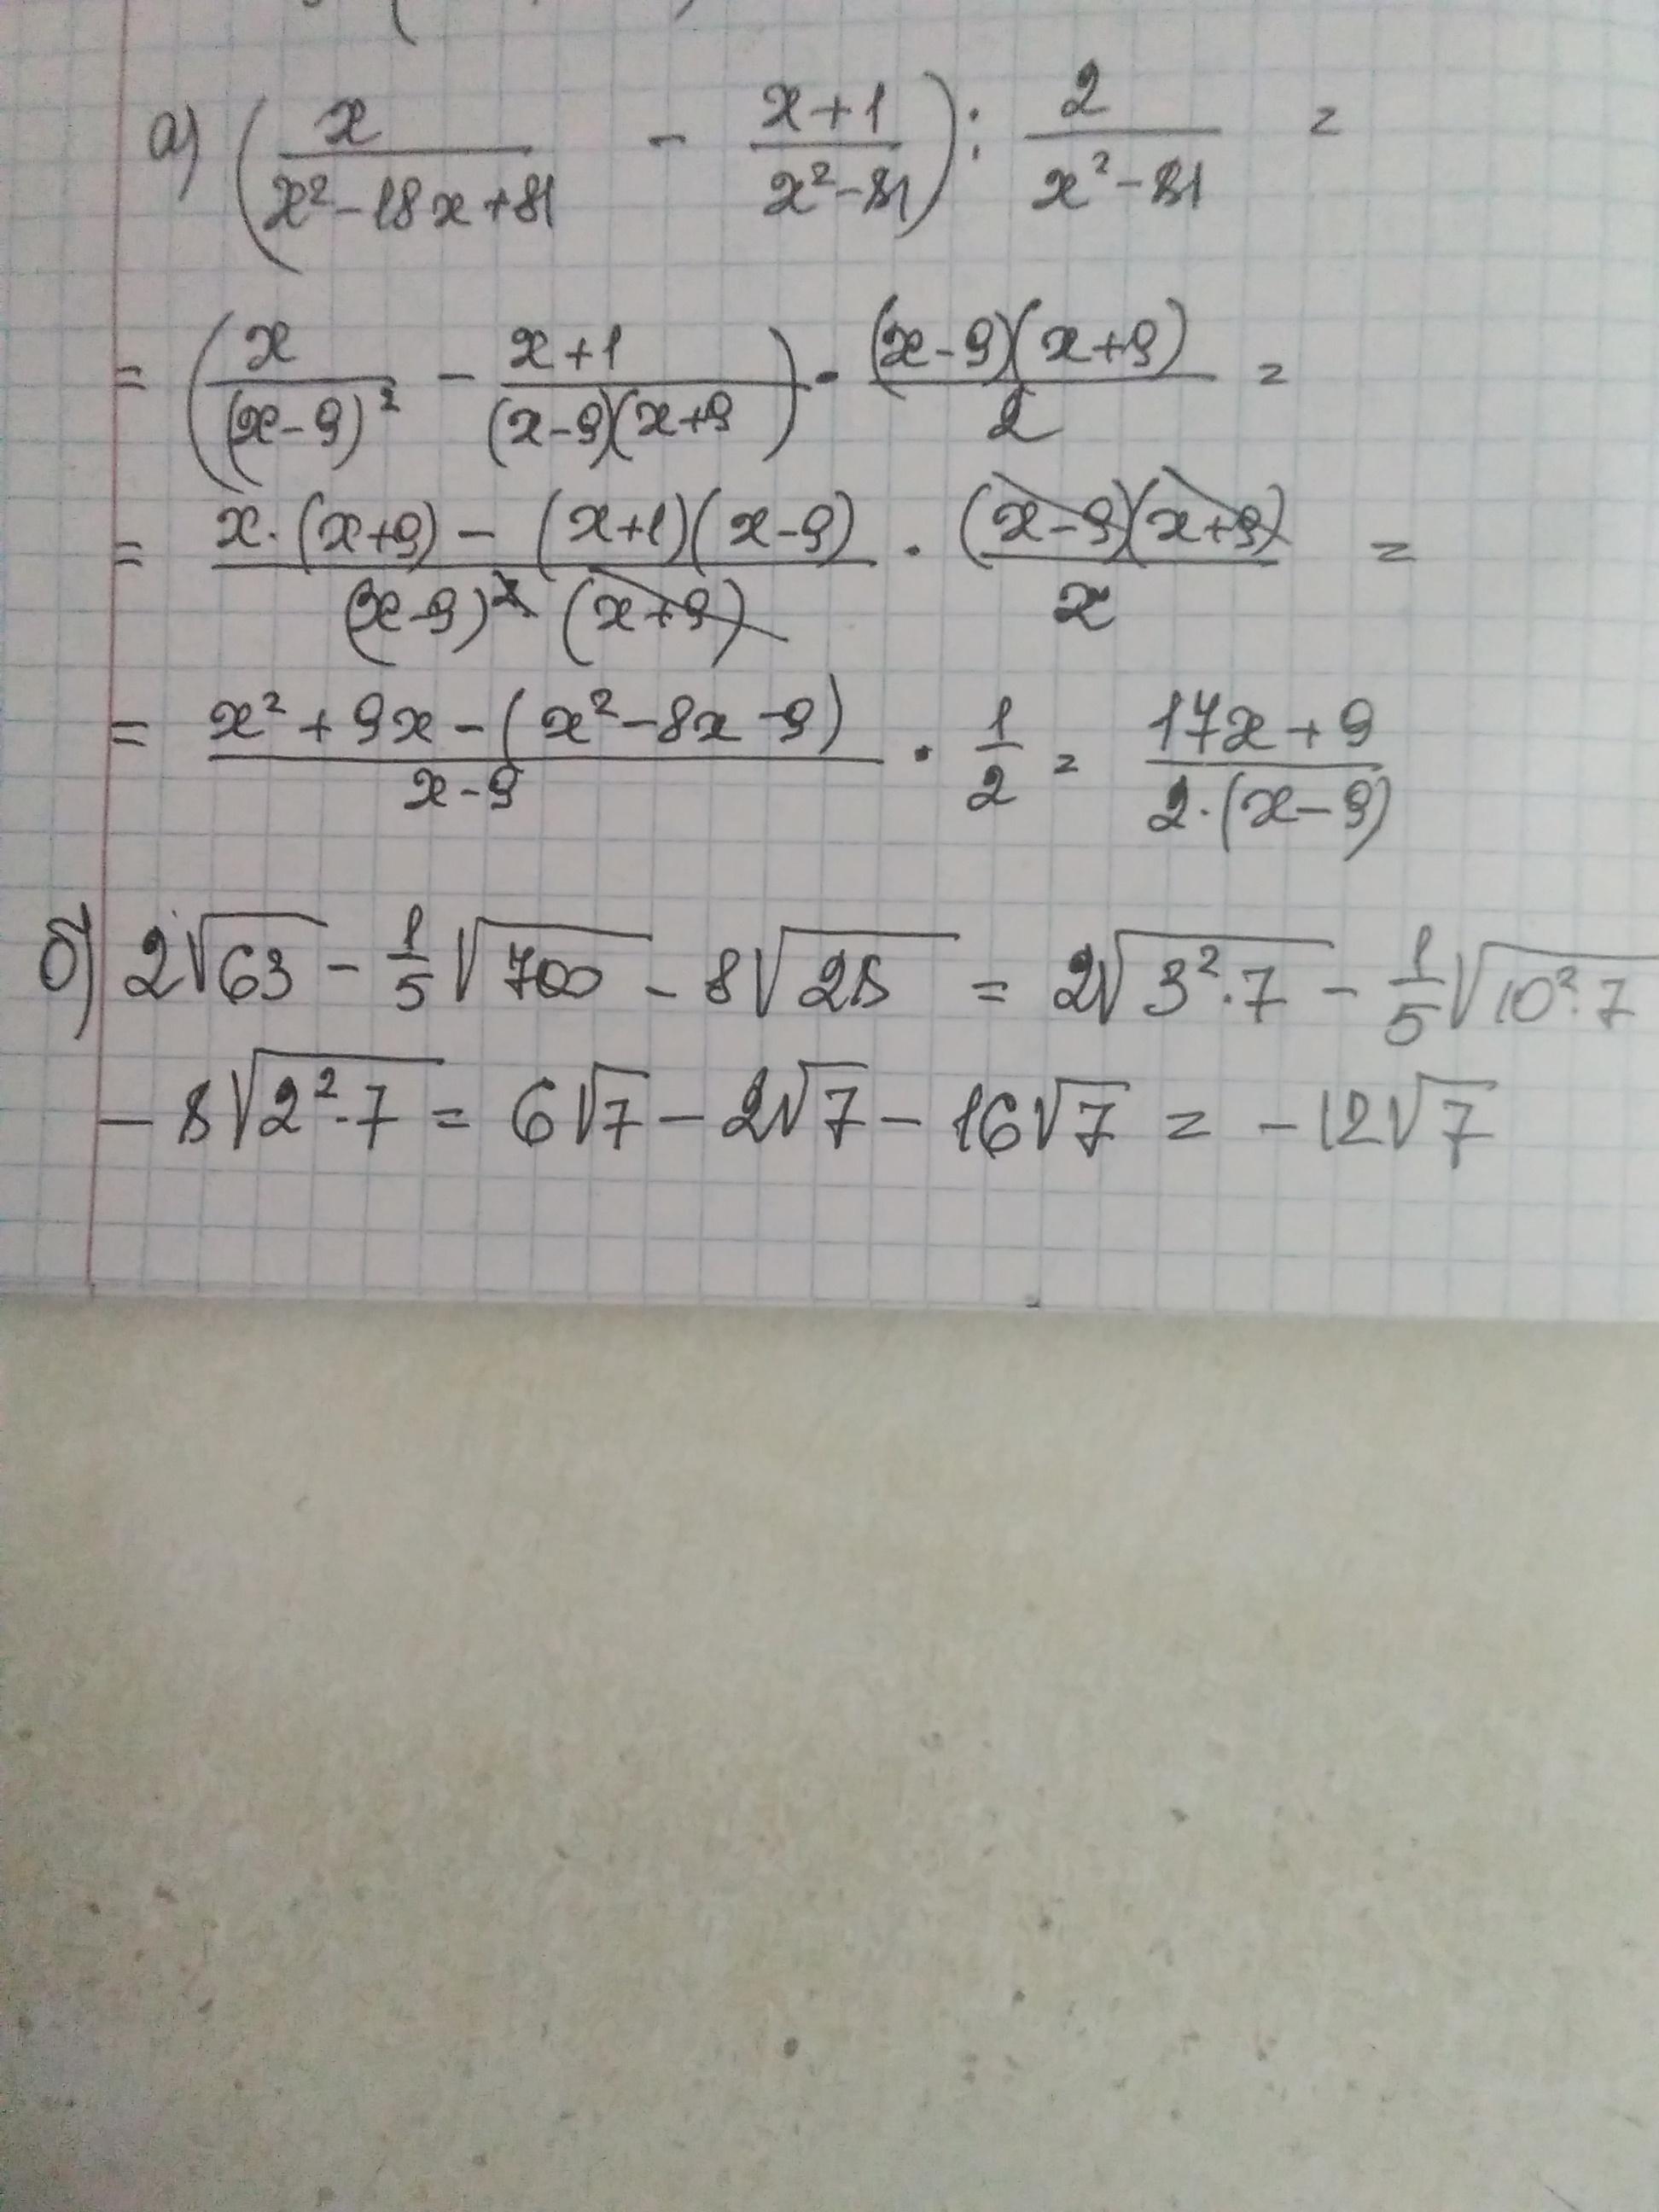 а) (x/(x²-18x+81) - (x+1)/(x²-81)) : 2/(x²-81) =
= (x/(x-9)² - (x+1)/((x-9)(x+9)) · ((x-9)(x+9))/2 =
= (x·(x+9) - (x+1)(x-9))/((x-9)²(x+9)) · ((x-9)(x+9))/2 =
= (x²+9x-(x²-8x-9))/(x-9) · 1/2 = (17x+9)/(2·(x-9))
б) 2√63 - 1/5√700 - 8√28 = 2√(3²·7) - 1/5√(10²·7)
- 8√(2²·7) = 6√7 - 2√7 - 16√7 = -12√7